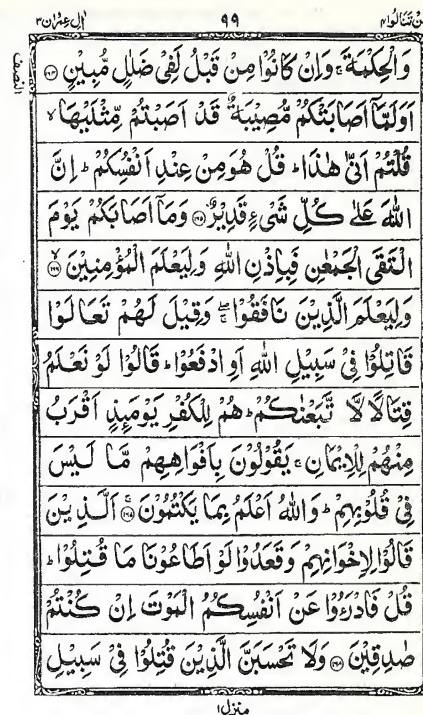 لن تنالوا ۴ ۹۹ اٰل عمرٰن ۳
النصف
وَالْحِكْمَةَ ۚ وَاِنْ كَانُوْا مِنْ قَبْلُ لَفِىْ ضَلٰلٍ مُّبِيْنٍ ﴿۱۶۴﴾
اَوَلَمَّاۤ اَصَابَتْكُمْ مُّصِيْبَةٌ قَدْ اَصَبْتُمْ مِّثْلَيْهَا ۙ
قُلْتُمْ اَنّٰى هٰذَا ؕ قُلْ هُوَ مِنْ عِنْدِ اَنْفُسِكُمْ ؕ اِنَّ
اللّٰهَ عَلٰى كُلِّ شَىْءٍ قَدِيْرٌ ﴿۱۶۵﴾ وَمَاۤ اَصَابَكُمْ يَوْمَ
الْتَقَى الْجَمْعٰنِ فَبِاِذْنِ اللّٰهِ وَلِيَعْلَمَ الْمُؤْمِنِيْنَ ﴿۱۶۶﴾ ۙ
وَلِيَعْلَمَ الَّذِيْنَ نَافَقُوْا ۖۚ وَقِيْلَ لَهُمْ تَعَالَوْا
قَاتِلُوْا فِىْ سَبِيْلِ اللّٰهِ اَوِ ادْفَعُوْا ؕ قَالُوْا لَوْ نَعْلَمُ
قِتَالًا لَّا تَّبَعْنٰكُمْ ؕ هُمْ لِلْكُفْرِ يَوْمَئِذٍ اَقْرَبُ
مِنْهُمْ لِلْاِيْمَانِ ۚ يَقُوْلُوْنَ بِاَفْوَاهِهِمْ مَّا لَيْسَ
فِىْ قُلُوْبِهِمْ ؕ وَاللّٰهُ اَعْلَمُ بِمَا يَكْتُمُوْنَ ﴿۱۶۷﴾ ۚ اَلَّذِيْنَ
قَالُوْا لِاِخْوَانِهِمْ وَقَعَدُوْا لَوْ اَطَاعُوْنَا مَا قُتِلُوْا ؕ
قُلْ فَادْرَءُوْا عَنْ اَنْفُسِكُمُ الْمَوْتَ اِنْ كُنْتُمْ
صٰدِقِيْنَ ﴿۱۶۸﴾ وَلَا تَحْسَبَنَّ الَّذِيْنَ قُتِلُوْا فِىْ سَبِيْلِ
منزل ۱